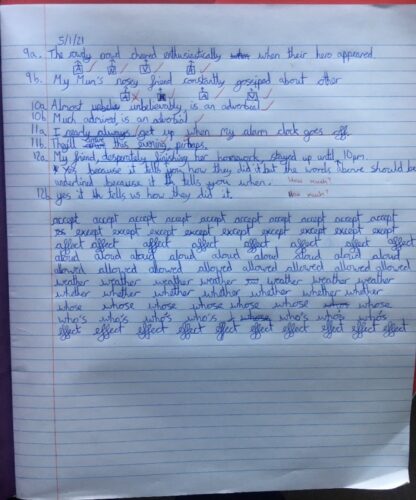 5/1/21
9a. The rowdy crowd cheered enthusiastically when their hero appeared.
A N V A
9b. My Mum's nosey friend constantly gossiped about other
A A V
10a Almost unbelievably, is an adverbial
10b Much admired, is an adverbial
11a I nearly always get up when my alarm clock goes off.
11b. They'll this evening, perhaps.
12a. My friend, desperately finishing her homework, stayed up until 10pm.
Yes because it tells you how they did it but the words above should be
underlined because it tells you when. How much?
12b yes it tells us how they did it. How much?
accept accept accept accept accept accept accept accept accept
except except except except except except except except
affect affect affect affect affect affect affect
aloud aloud aloud aloud aloud aloud aloud aloud
allowed allowed allowed allowed allowed allowed allowed allowed
weather weather weather weather weather weather weather
whether whether whether whether whether whether whether
whose whose whose whose whose whose whose
who's who's who's who's who's who's who's
effect effect effect effect effect effect effect effect effect